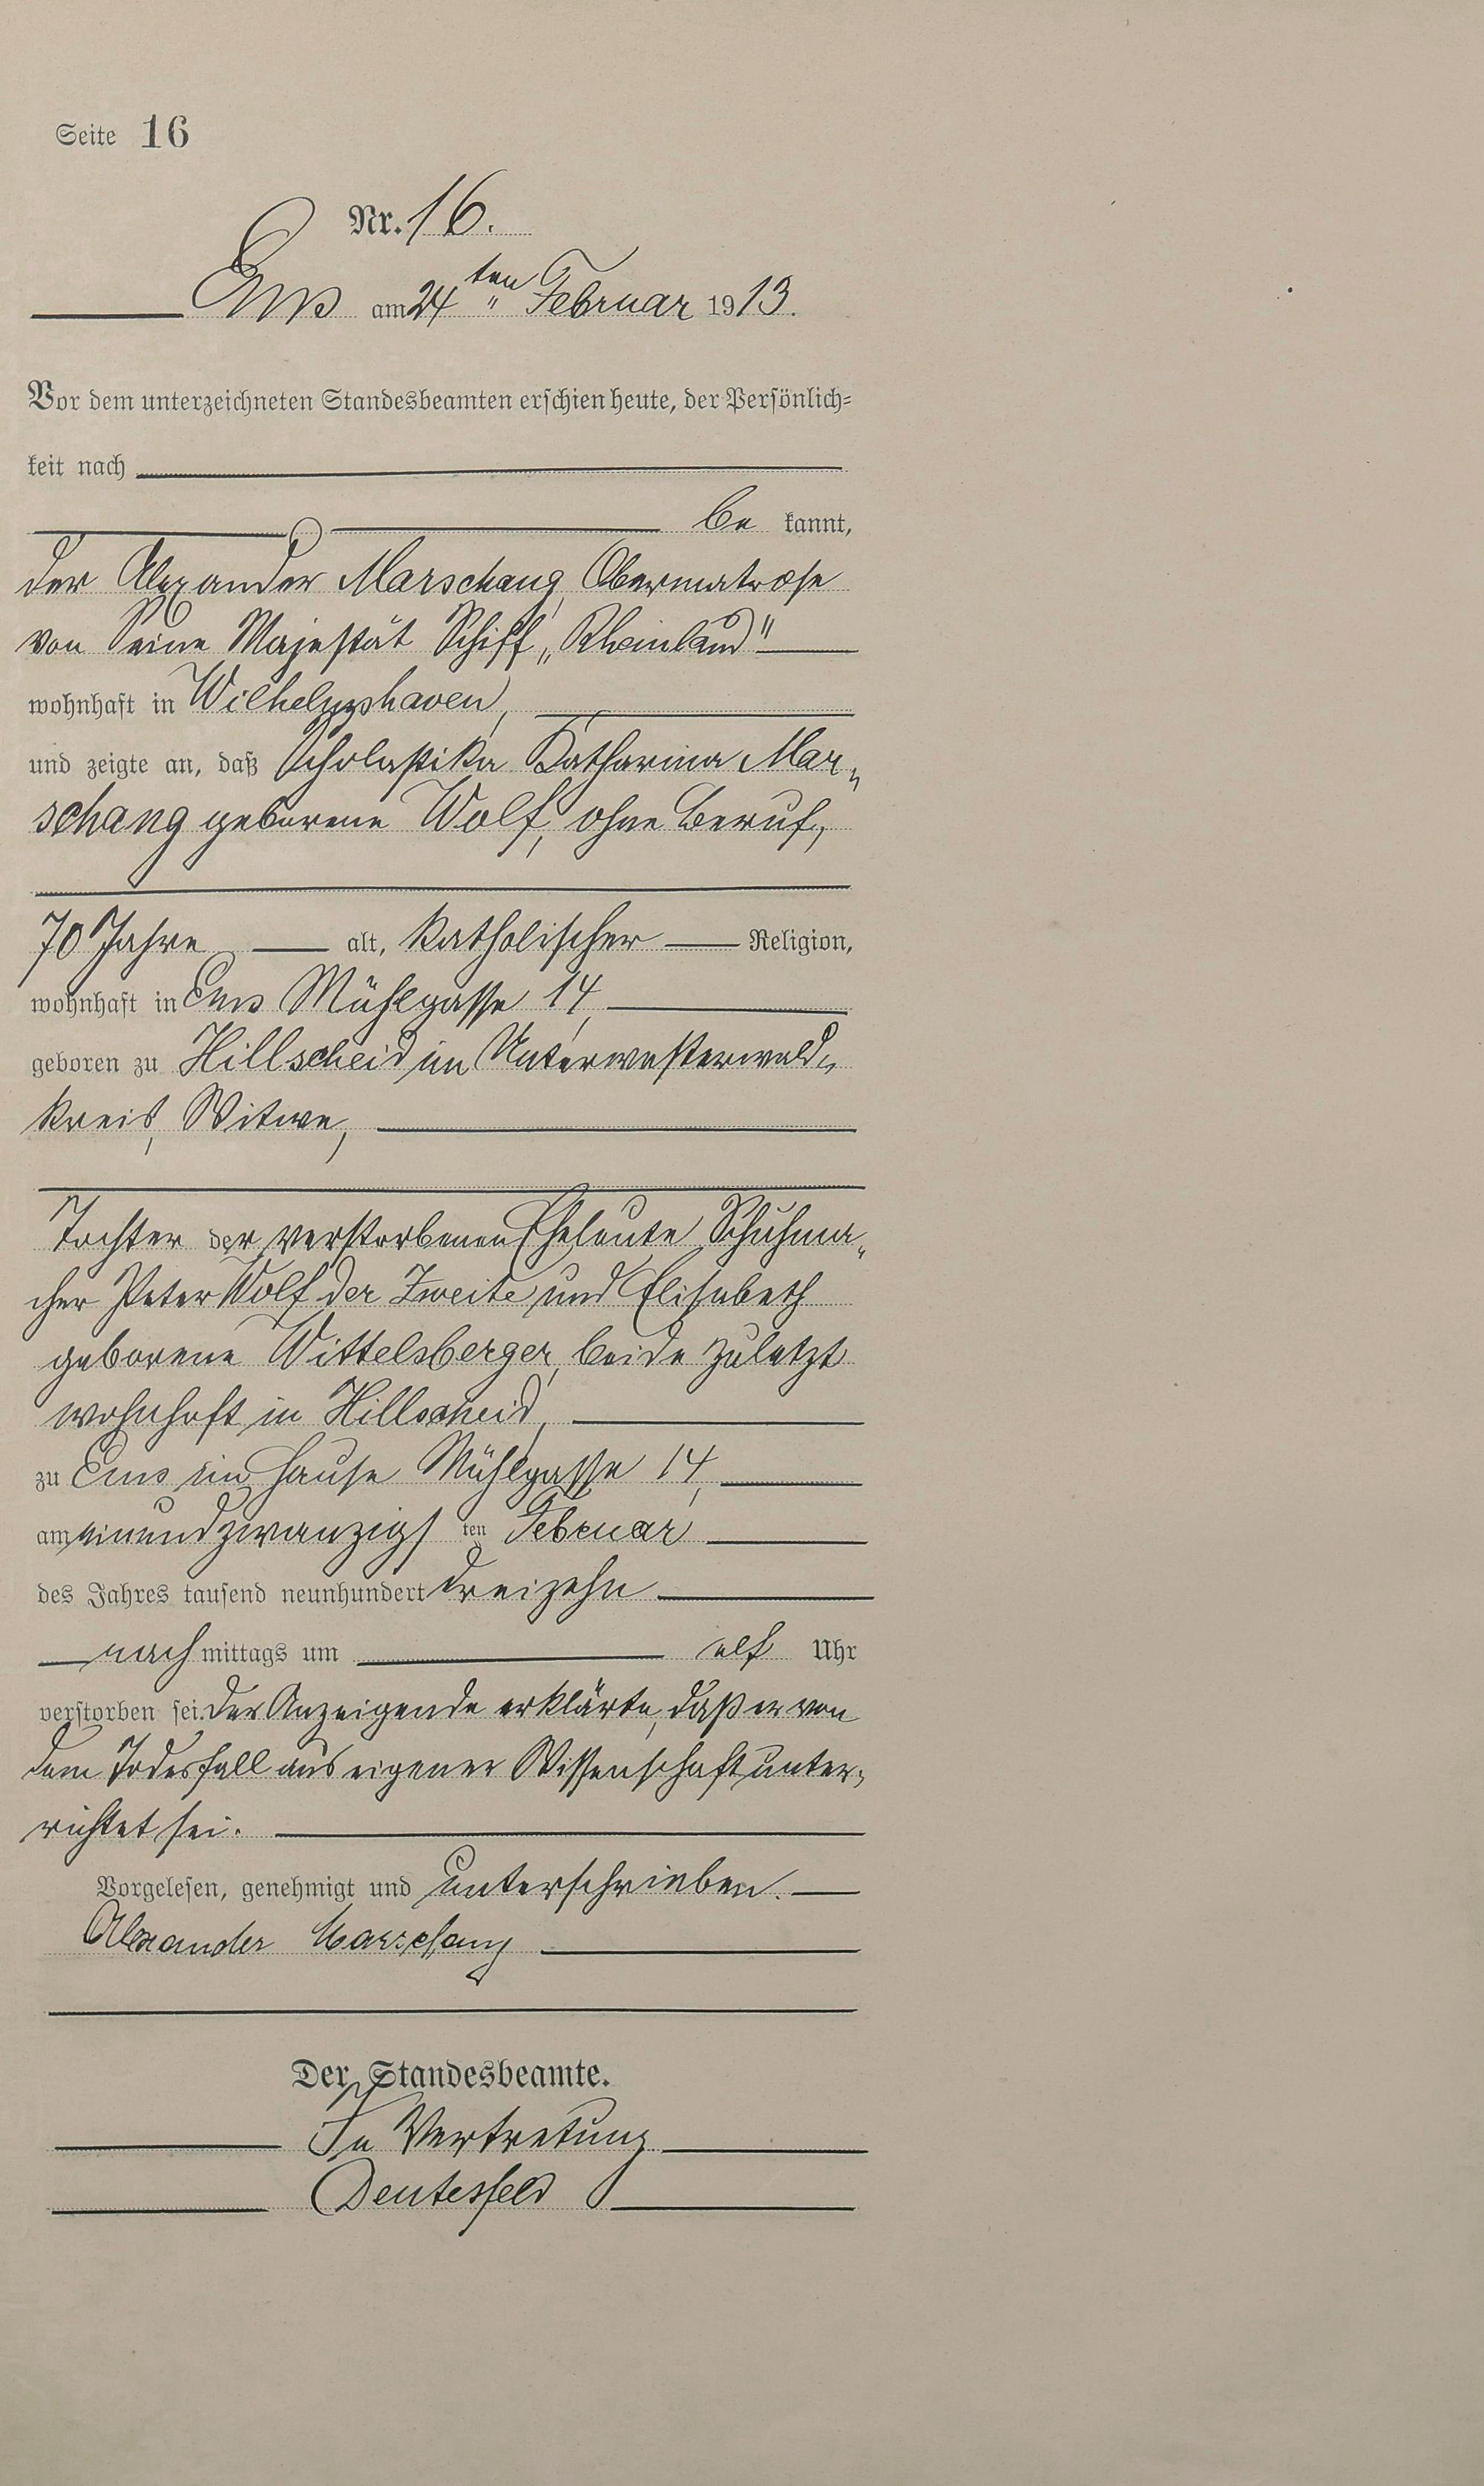 Seite 16
Nr. 16.
Ems am 24ten Februar 1913.
Vor dem unterzeichneten Standesbeamten erschien heute, der Persönlich=
keit nach
be kannt,
der Alexander Marschang, Obermatrose
von Seine Majestät Schiff „Rheinland"
wohnhaft in Wilhelmshaven,
und zeigte an, daß Scholastika Katharina Mar-
schang geborene Wolf, ohne Beruf,
70 Jahre alt, katholischer Religion,
wohnhaft in Ems Mühlgasse 14,
geboren zu Hillscheid im Unterwesterwald-
kreis, Witwe,
Tochter der verstorbenen Eheleute Schuhma-
cher Peter Wolf der Zweite und Elisabeth
geborene Wittelsberger, beide zuletzt
wohnhaft in Hillscheid,
zu Ems im Hause Mühlgasse 14,
am einundzwanzigs ten Februar
des Jahres tausend neunhundert dreizehn
nach mittags um elf Uhr
verstorben sei. Der Anzeigende erklärte, daß er von
dem Todesfall aus eigener Wissenschaft unter-
richtet sei.
Vorgelesen, genehmigt und unterschrieben.
Alexander Marschang
Der Standesbeamte.
In Vertretung
Deutesfeld